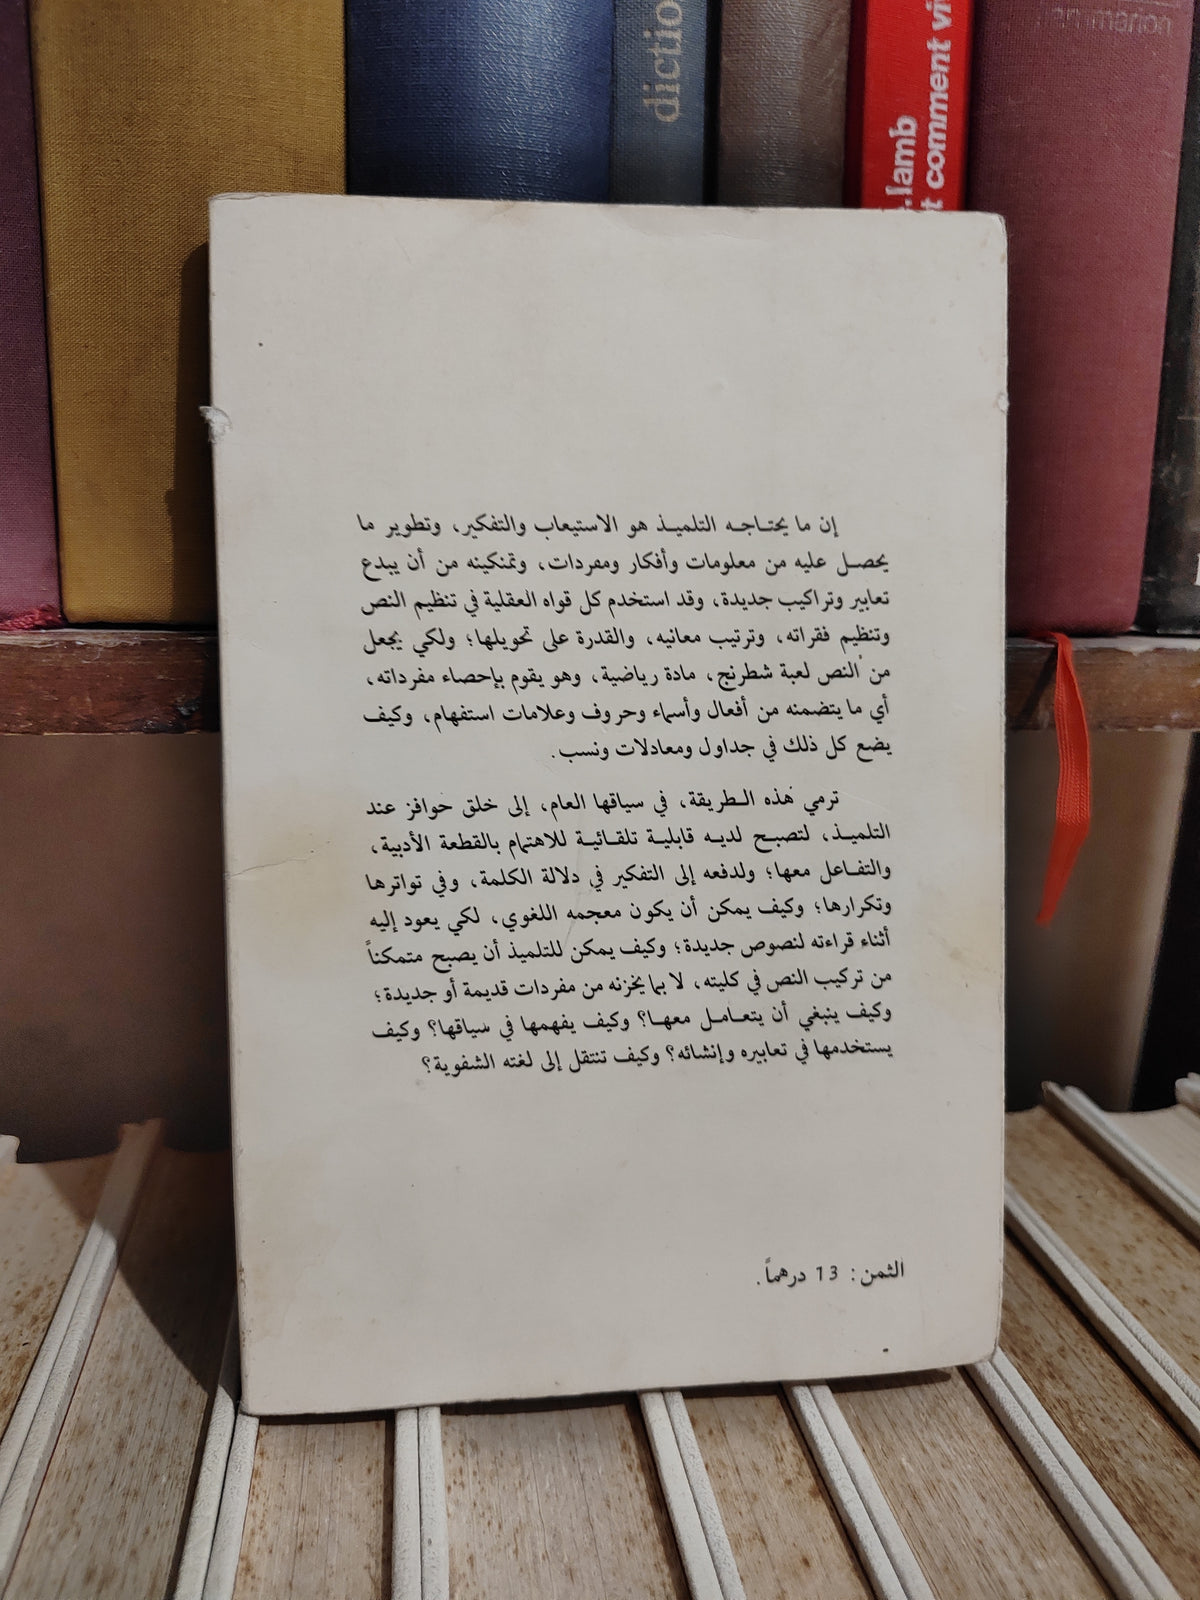 dictio
lamb
t comment vi
flammarion
إن ما يحتاجه التلميذ هو الاستيعاب والتفكير، وتطوير ما
يحصل عليه من معلومات وأفكار ومفردات، وتمنكينه من أن يبدع
تعابير وتراكيب جديدة، وقد استخدم كل قواه العقلية في تنظيم النص
وتنظيم فقراته، وترتيب معانيه، والقدرة على تحويلها؛ ولكي يجعل
من النص لعبة شطرنج، مادة رياضية، وهو يقوم بإحصاء مفرداته،
أي ما يتضمنه من أفعال وأسماء وحروف وعلامات استفهام، وكيف
يضع كل ذلك في جداول ومعادلات ونسب.
ترمي هذه الطريقة، في سياقها العام، إلى خلق حوافز عند
التلميذ، لتصبح لديه قابلية تلقائية للاهتمام بالقطعة الأدبية،
والتفاعل معها؛ ولدفعه إلى التفكير في دلالة الكلمة، وفي تواترها
وتكرارها؛ وكيف يمكن أن يكون معجمه اللغوي، لكي يعود إليه
أثناء قراءته لنصوص جديدة؛ وكيف يمكن للتلميذ أن يصبح متمكناً
من تركيب النص في كليته، لا بما يخزنه من مفردات قديمة أو جديدة؛
وكيف ينبغي أن يتعامل معها؟ وكيف يفهمها في سياقها؟ وكيف
يستخدمها في تعابيره وإنشائه؟ وكيف تنتقل إلى لغته الشفوية؟
الثمن: 13 درهماً.